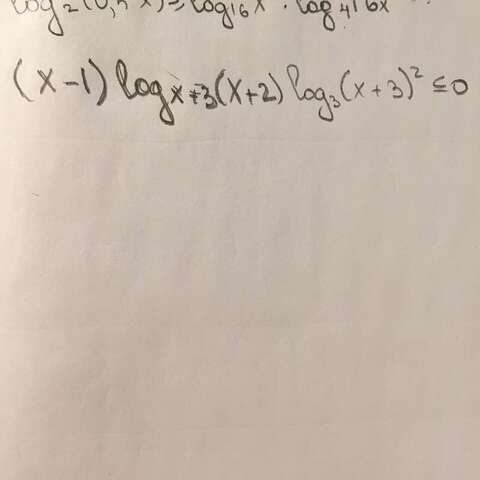 log₁₆x · log₄16x
(x-1) logₓ₊₃(x+2) log₃(x+3)² ≤ 0